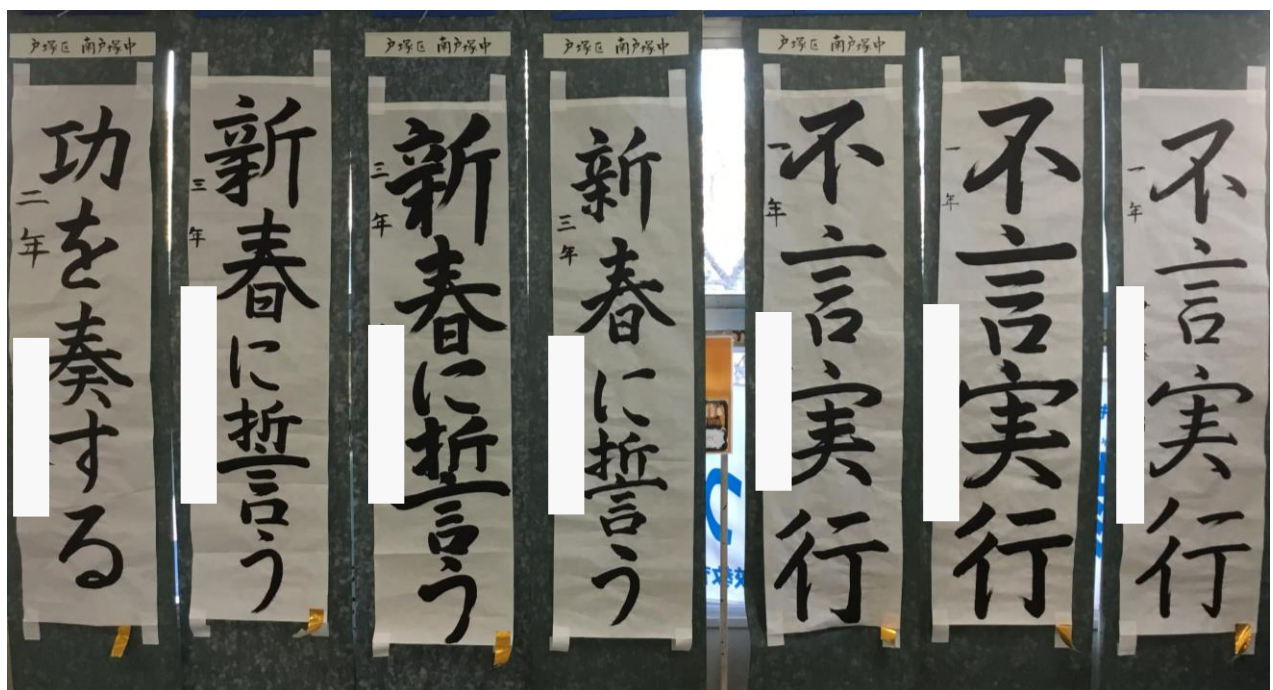 戸塚区 南戸塚中
功を奏する
二年
新春に誓う
三年
戸塚区 南戸塚中
新春に誓う
三年
戸塚区 南戸塚中
新春に誓う
三年
戸塚区 南戸塚中
不言実行
一年
不言実行
一年
不言実行
一年